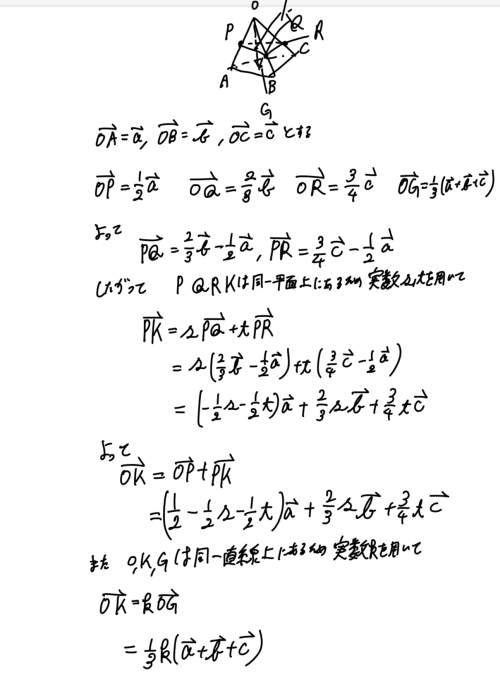 O K Q R
P C
A B
G
$\overrightarrow{OA}=\vec{a}, \overrightarrow{OB}=\vec{b}, \overrightarrow{OC}=\vec{c}$ とする
$\overrightarrow{OP}=\frac{1}{2}\vec{a}$ $\overrightarrow{OQ}=\frac{2}{8}\vec{b}$ $\overrightarrow{OR}=\frac{3}{4}\vec{c}$ $\overrightarrow{OG}=\frac{1}{3}(\vec{a}+\vec{b}+\vec{c})$
よって
$\overrightarrow{PQ}=\frac{2}{3}\vec{b}-\frac{1}{2}\vec{a}, \overrightarrow{PR}=\frac{3}{4}\vec{c}-\frac{1}{2}\vec{a}$
したがって P Q R Kは同一平面上にあるから 実数s,tを用いて
$\overrightarrow{PK}=s\overrightarrow{PQ}+t\overrightarrow{PR}$
$=s(\frac{2}{3}\vec{b}-\frac{1}{2}\vec{a})+t(\frac{3}{4}\vec{c}-\frac{1}{2}\vec{a})$
$=(-\frac{1}{2}s-\frac{1}{2}t)\vec{a}+\frac{2}{3}s\vec{b}+\frac{3}{4}t\vec{c}$
よって
$\overrightarrow{OK}=\overrightarrow{OP}+\overrightarrow{PK}$
$=(\frac{1}{2}-\frac{1}{2}s-\frac{1}{2}t)\vec{a}+\frac{2}{3}s\vec{b}+\frac{3}{4}t\vec{c}$
また O,K,Gは同一直線上にあるから 実数kを用いて
$\overrightarrow{OK}=k\overrightarrow{OG}$
$=\frac{1}{3}k(\vec{a}+\vec{b}+\vec{c})$